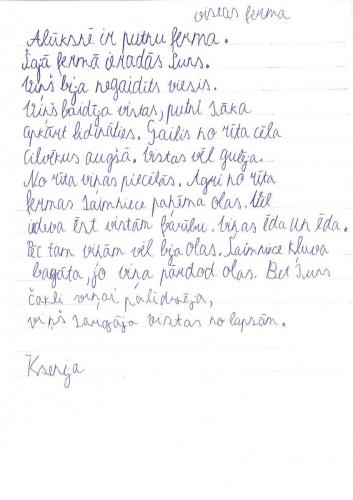 vistas ferma
Alūksnē ir putnu ferma.
Šajā fermā ieradās Suns.
Viņš bija negaidīts viesis.
Viņš baidīja vistas, putni sāka
apkārt lidināties. Gailis no rīta cēla
cilvēkus augšā. Vistas vēl gulēja.
No rīta viņas piecēlās. Agri no rīta
fermas saimniece paņēma olas. Vēl
iedeva ēst vistām barību. Viņas ēda un ēda.
Pēc tam viņām vēl bija olas. Saimniece kļuva
bagāta, jo viņa pārdod olas. Bet Suns
čakli viņai palīdzēja,
viņš sargāja vistas no lapsām.
Ksenija